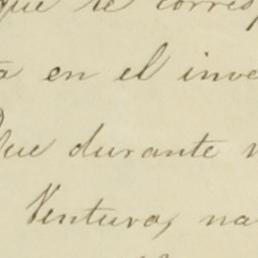 que se corres
a en el inve
Que durante
Ventura, na